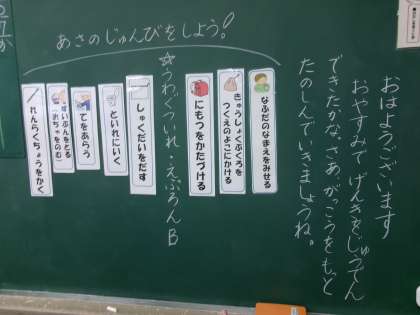 おはようございます
おやすみで げんきをじゅうでん
できたかな。さあ、がっこうをもっと
たのしんでいきましょうね。
あさのじゅんびをしよう!
なふだのなまえをみせる
きゅうしょくぶくろを
つくえのよこにかける
にもつをかたづける
☆うわぐついれ・えぷろんB
しゅくだいをだす
といれにいく
てをあらう
すいぶんをとる
(おちゃをのむ)
れんらくちょうをかく